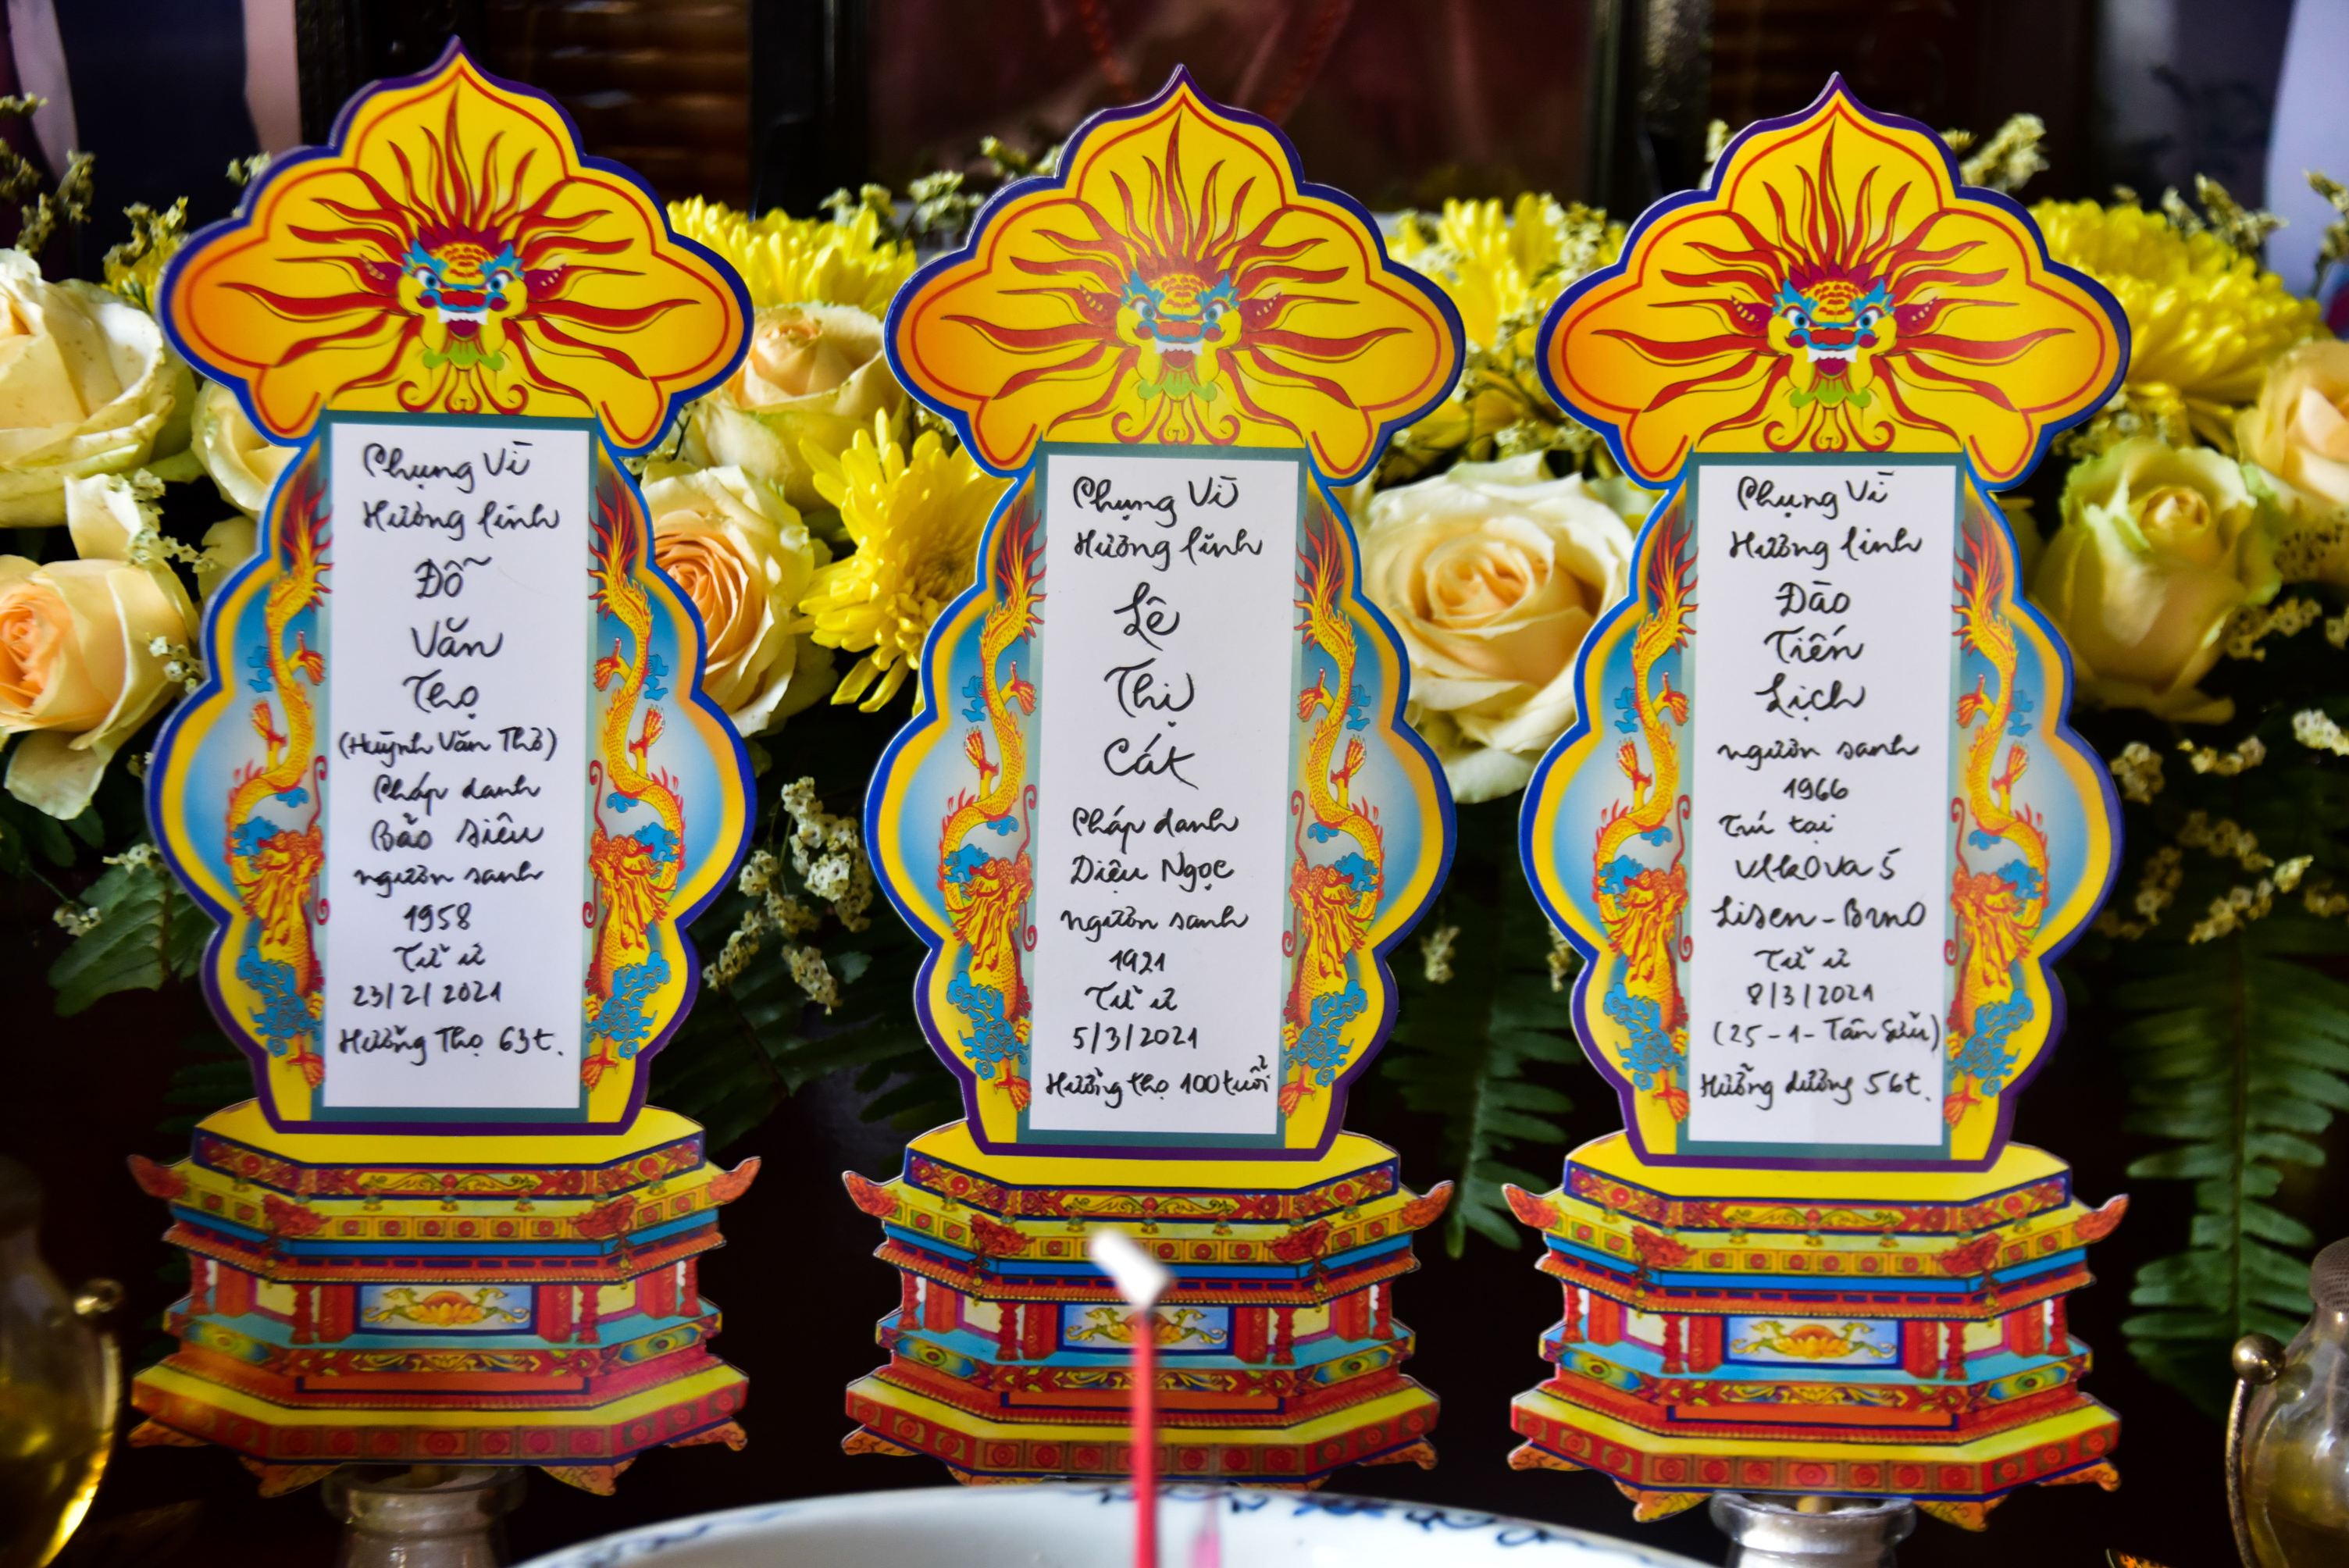 Phụng Vì
Hương linh
Đỗ
Văn
Thọ
(Huỳnh Văn Thọ)
Pháp danh
Bảo Siêu
nguơn sanh
1958
Từ ư
23/2/2021
Hưởng Thọ 63t.
Phụng Vì
Hương linh
Lê
Thị
Cát
Pháp danh
Diệu Ngọc
nguơn sanh
1921
Từ ư
5/3/2021
Hưởng thọ 100 tuổi
Phụng Vì
Hương linh
Đào
Tiến
Lịch
nguơn sanh
1966
Trú tại
Vlkova 5
Lisen - Brno
Từ ư
8/3/2021
(25-1-Tân Sửu)
Hưởng dương 56t.